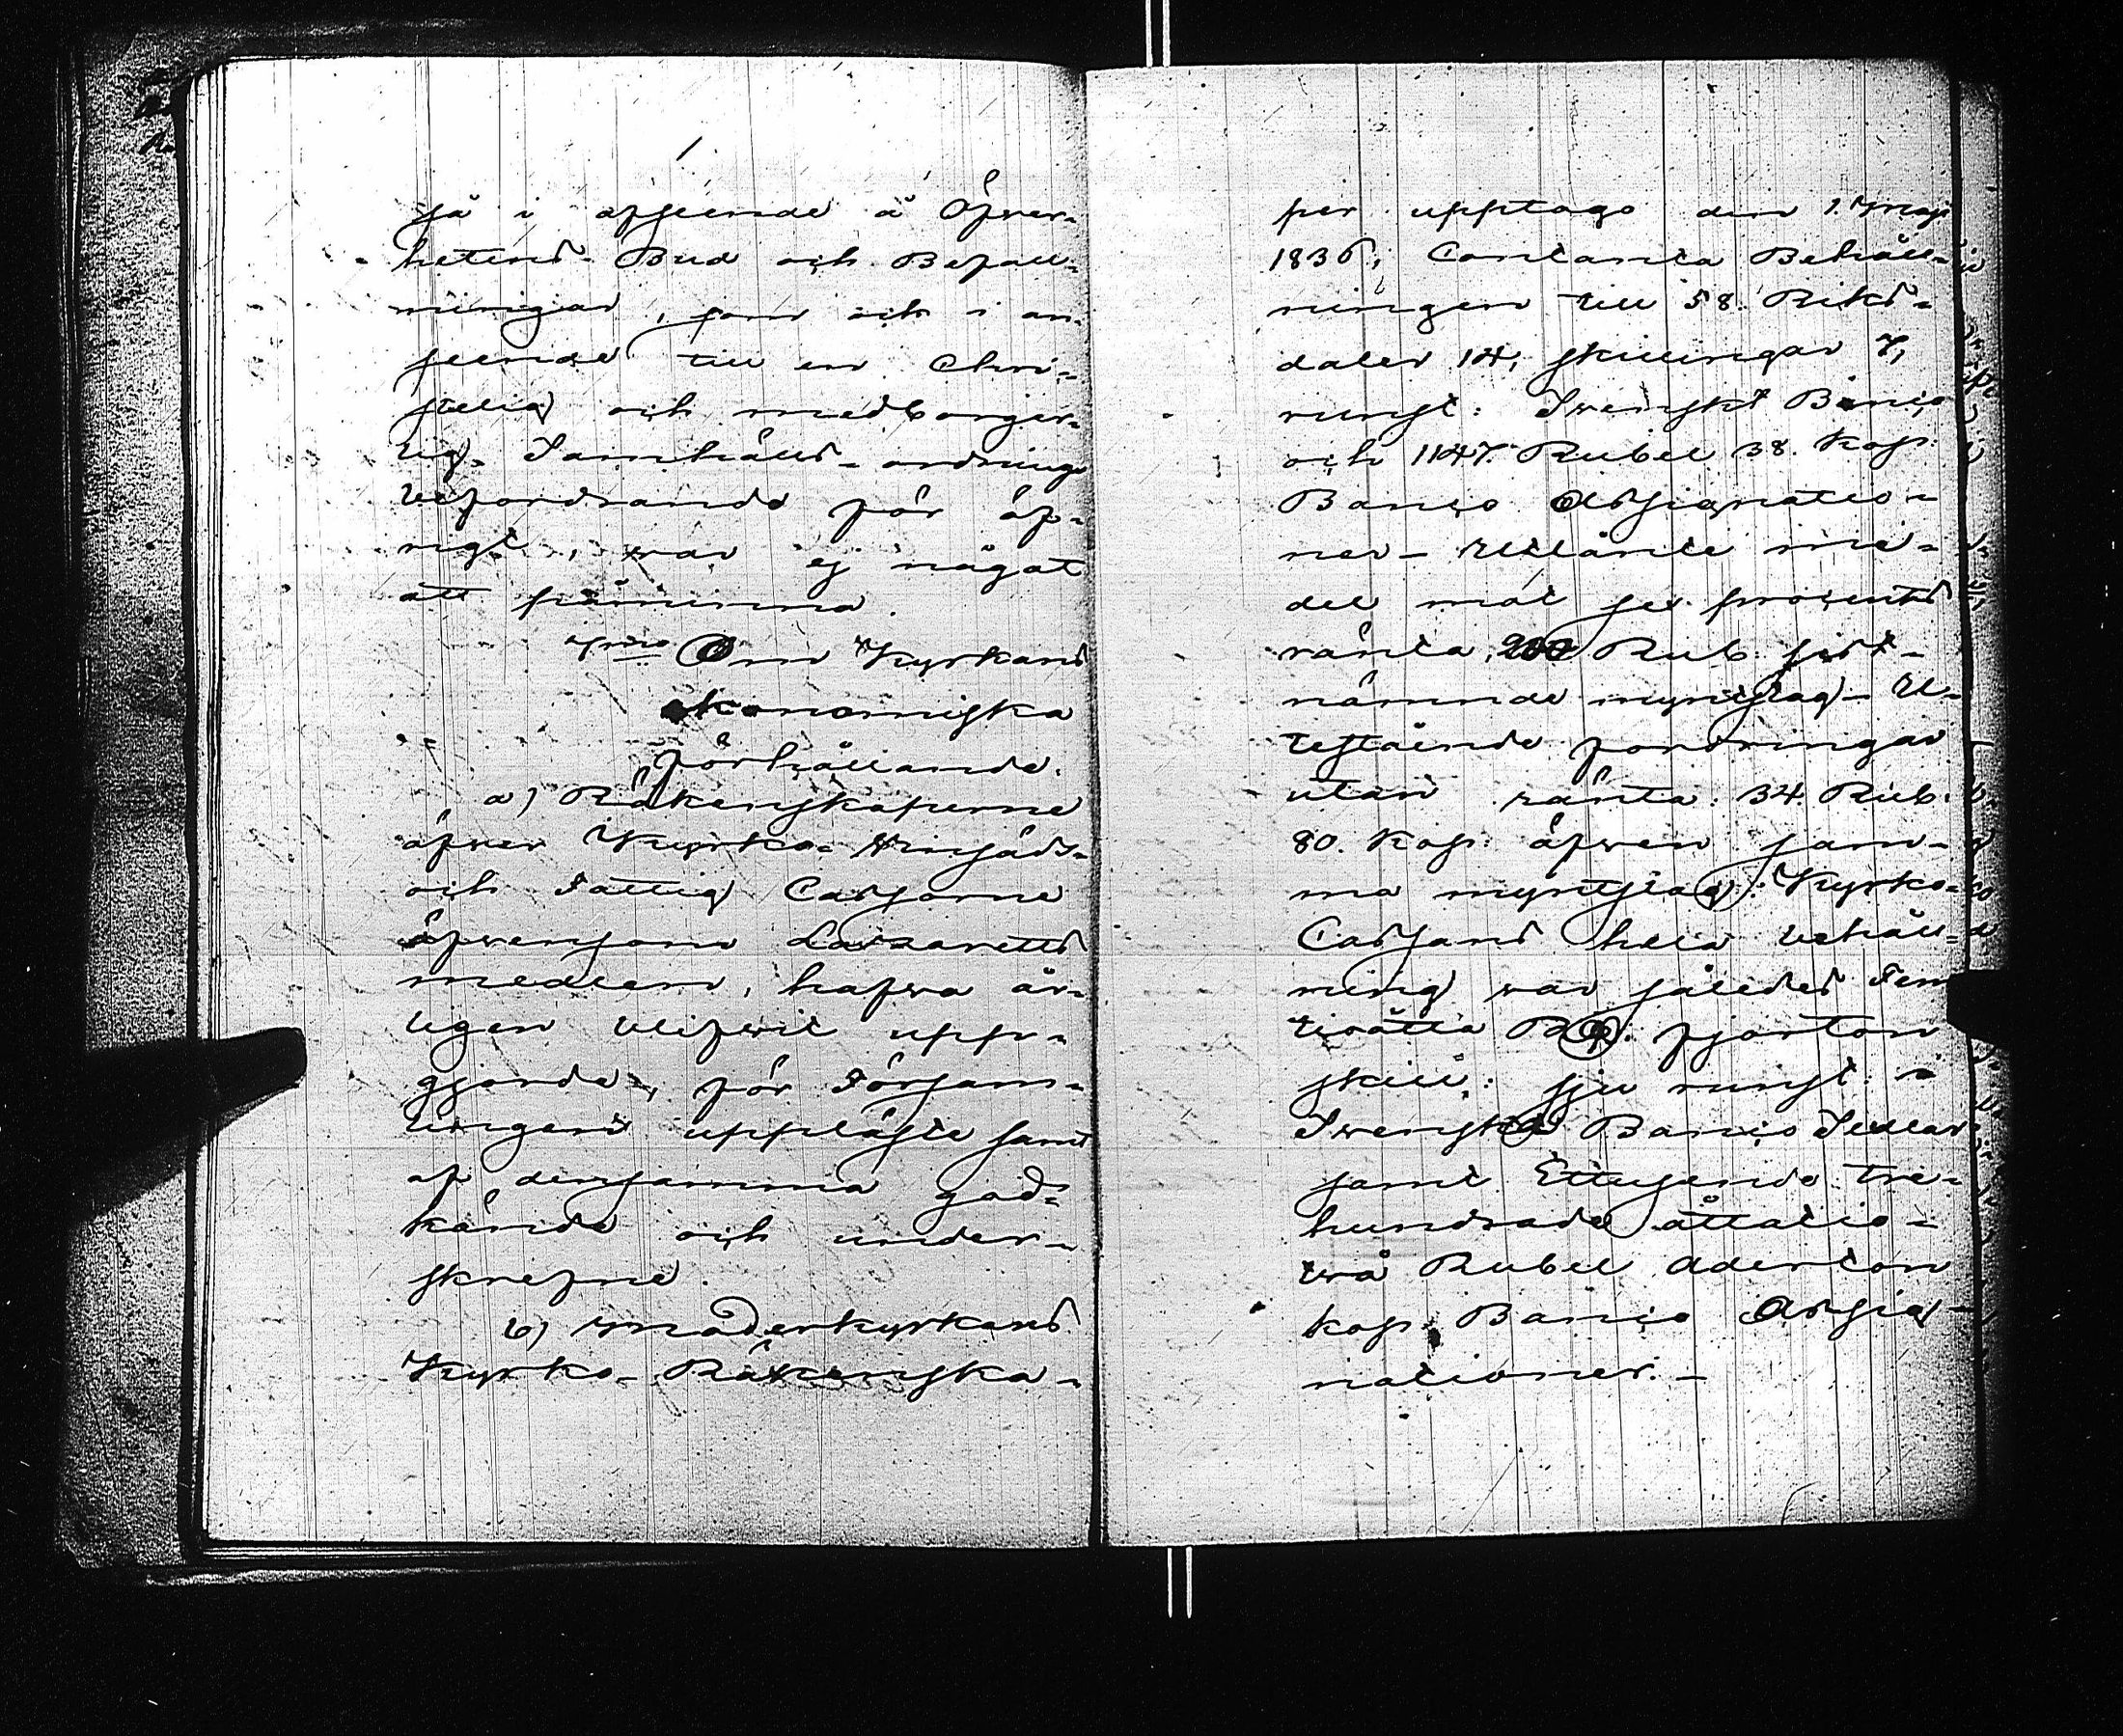 så i afseende å Öfver-
hetens Bud och Befall-
ningar, som och i an-
seende till en Chri-
stelig och medborger-
lig Samhälls-ordnings
befordrande för öf-
rigt, var ej något
att påminna.
Om Kyrkans
ekonomiska
förhållande.
a) Räkenskaperne
öfver Kyrko- Vinsäds-
och Fattig Cassorne
äfvensom Lazaretts
medlem, hafva år-
ligen blifvit upp-
gjorda, för Försam-
lingen uppläste samt
af densamma god-
kände och under-
skrefne.
b) Moderkyrkans
Kyrko-Räkenska-
per upptogo den 1. Maji
1836, Contanta Behåll-
ningen till 58. Riks-
daler 14, skillingar 7,
runst: Svenskt Banco
och 1147. Rubel 38. Kop:
Banco Assignatio-
ner - Utlånte me-
del mot sex procents
ränta, 200 Rub. sist-
nämnde myntslag - U-
testående fordringar
utan ränta: 34 Rub.
80. Kop: äfven sam-
ma myntslag: Kyrko-
Cassans hela behåll-
ning var således Fem
tioåtta Rd: fjorton
skill: sju runst: i
Svenska Banco Sedlar
samt Ettusende tre-
hundrade åttatio-
två Rubel aderton
kop. Banco Assig-
nationer. -